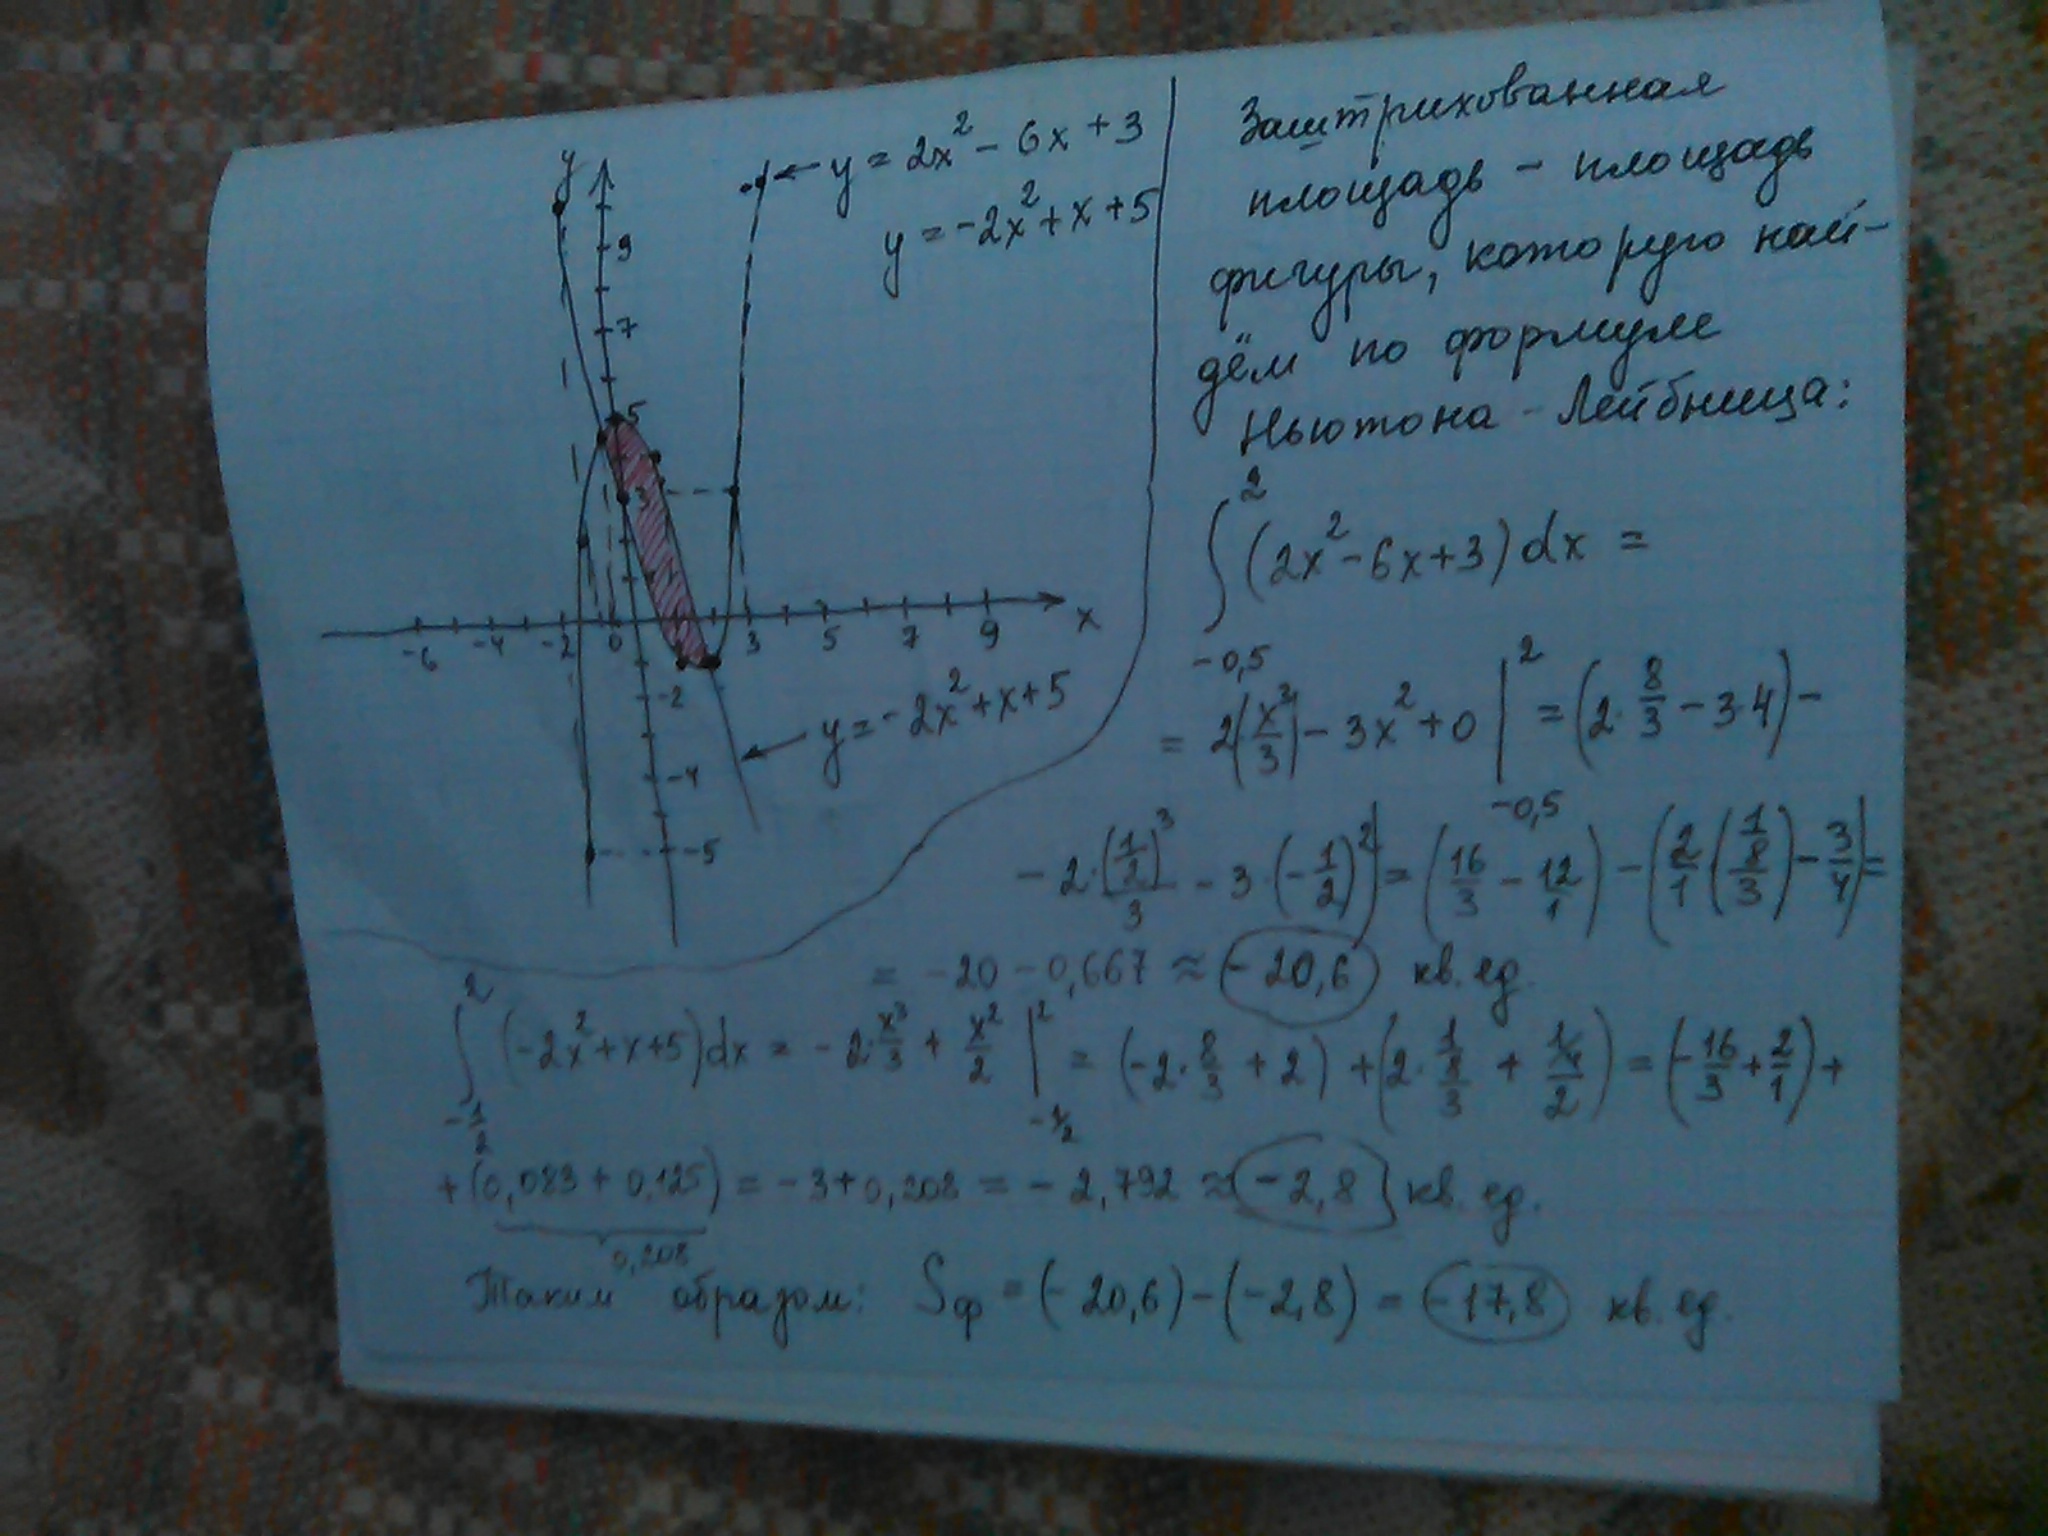 y
y = 2x² - 6x + 3
y = -2x² + x + 5
9
7
5
3
1
-6 -4 -2 0 3 5 7 9 x
-2
-4
-5
y = -2x² + x + 5
Заштрихованная
площадь - площадь
фигуры, которую най-
дём по формуле
Ньютона - Лейбница:
∫_{-0,5}^{2} (2x² - 6x + 3) dx =
= 2(x³/3) - 3x² + 0 |_{-0,5}^{2} = (2 · 8/3 - 3·4) -
- 2·(1/2)³/3 - 3·(-1/2)²) = (16/3 - 12/1) - (2/1 (1/8/3) - 3/4) =
= -20 - 0,667 ≈ -20,6 кв. ед.
∫_{-1/2}^{2} (-2x² + x + 5) dx = -2·x³/3 + x²/2 |_{-1/2}^{2} = (-2·8/3 + 2) + (2·1/8/3 + 1/4/2) = (-16/3 + 2/1) +
+ (0,083 + 0,125) = -3 + 0,208 = -2,792 ≈ -2,8 кв. ед.
0,208
Таким образом: Sф = (-20,6) - (-2,8) = -17,8 кв. ед.